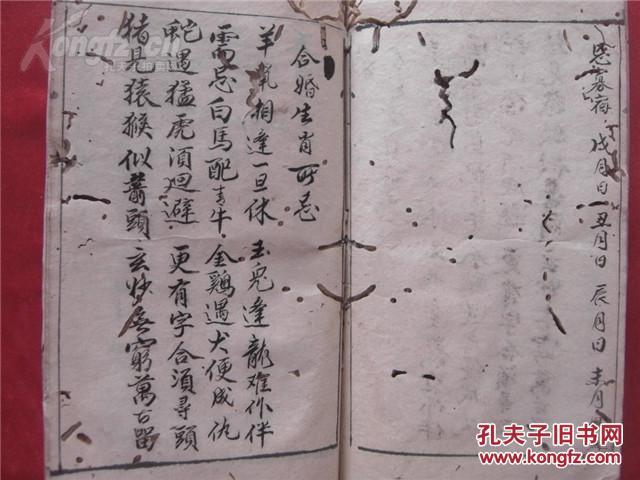 恩寡梅 戌月日 丑月日 辰月日 未月
合婚生肖所忌
羊鼠相逢一旦休 玉兎逢龍难作伴
需忌白馬配青牛 金鷄遇犬便成仇
蛇遇猛虎須廻避 更有字合須尋頭
猪見猿猴似箭頭 玄妙無窮萬古留
孔夫子旧书网
www.kongfz.com
Kongfz.com